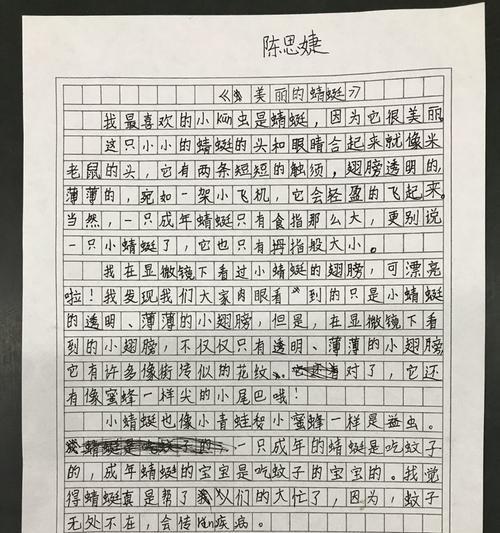 陈思婕
《美丽的蜻蜓》
我最喜欢的小kūn虫是蜻蜓，因为它很美丽。
这只小小的蜻蜓的头和眼睛合起来就像米
老鼠的头，它有两条短短的触须，翅膀透明的，
薄薄的，宛如一架小飞机，它会轻盈的飞起来。
当然，一只成年蜻蜓只有食指那么大，更别说
一只小蜻蜓了，它也只有拇指般大小。
我在显微镜下看过小蜻蜓的翅膀，可漂亮
啦！我发现我们大家肉眼看"到的只是小蜻蜓
的透明、薄薄的小翅膀，但是，在显微镜下看
到的小翅膀，不仅仅只有透明、薄薄的小翅膀，
它有许多像砖似的花纹，对了，它还
有像蜜蜂一样尖的小尾巴哦！
小蜻蜓也像小青蛙和小蜜蜂一样是益虫。
一只成年的蜻蜓是吃蚊子
的，成年蜻蜓的宝宝是吃蚊子的宝宝的。我觉
得蜻蜓真是帮了人们的大忙了，因为，蚊子
无处不在，会传rǎn疾病。